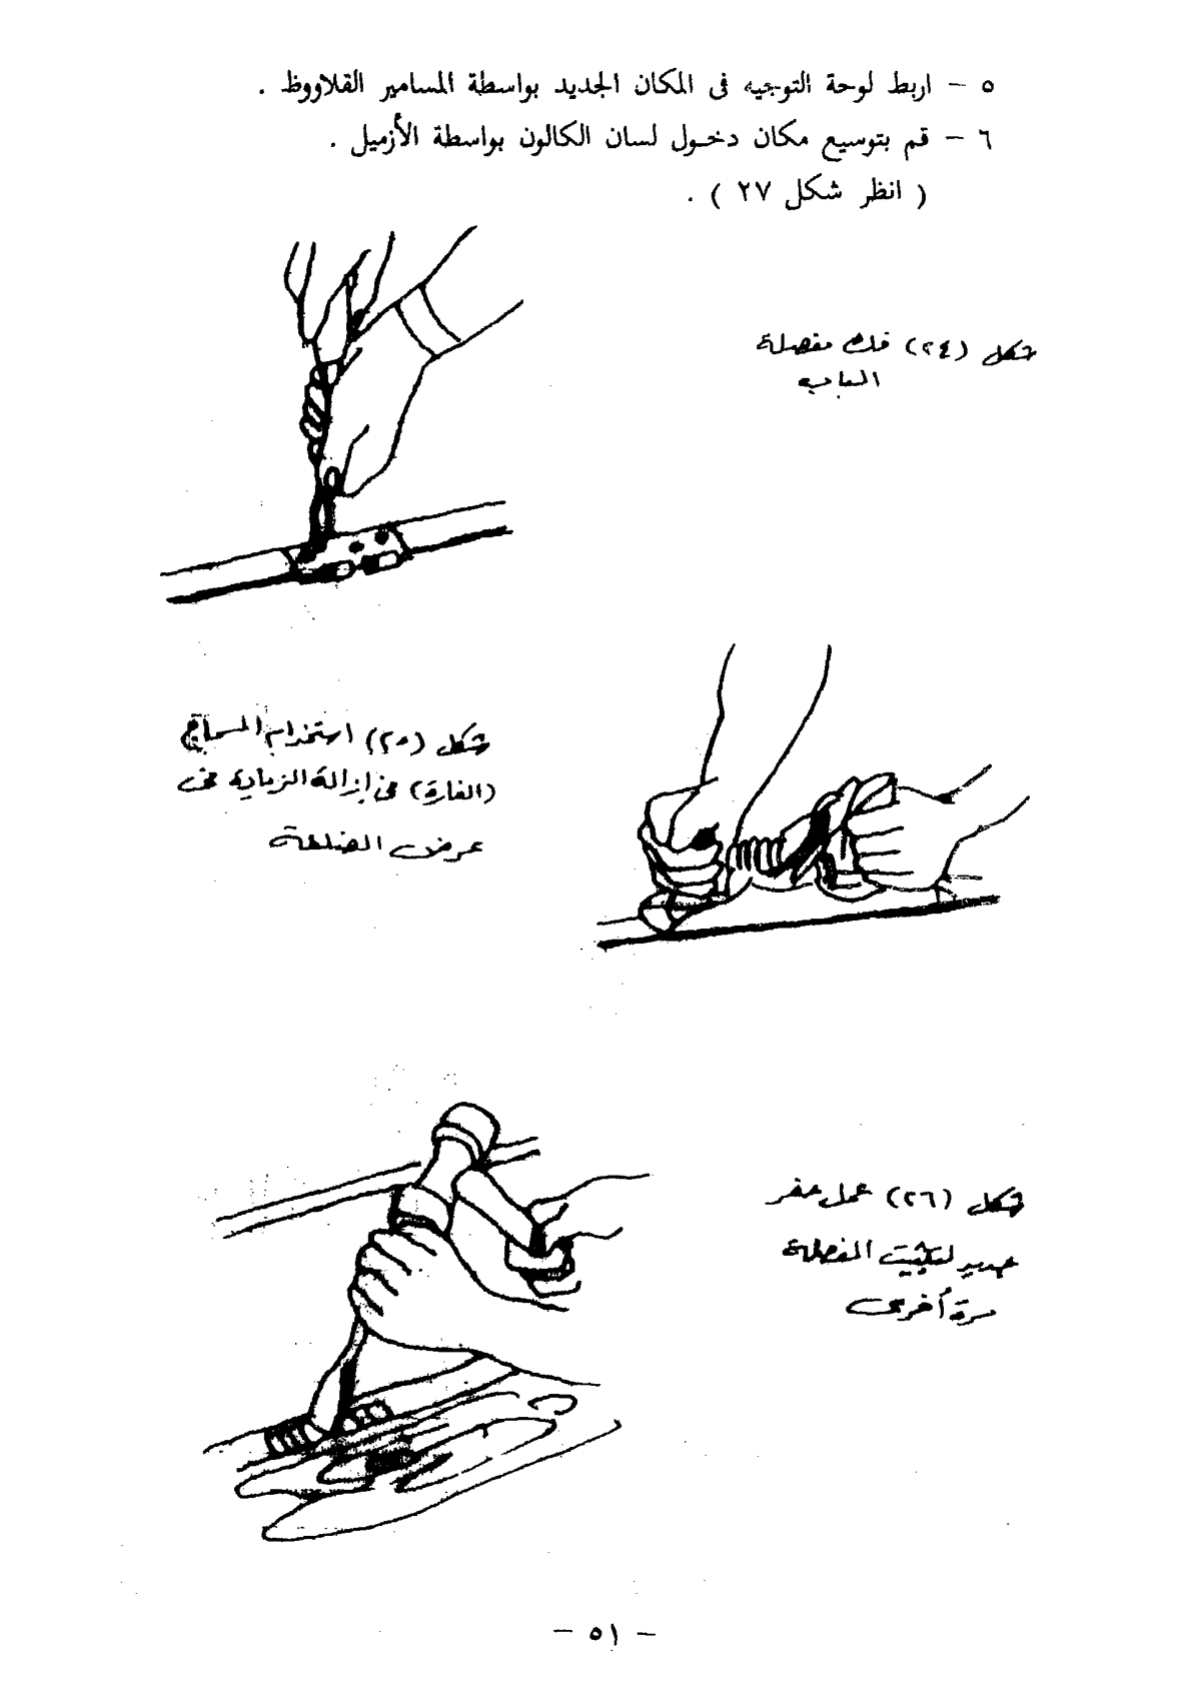 ٥ – اربط لوحة التوجيه فى المكان الجديد بواسطة المسامير القلاووظ .
٦ – قم بتوسيع مكان دخول لسان الكالون بواسطة الأزميل .
( انظر شكل ٢٧ ) .
شكل (٢٤) فك مفصلة
الباب
شكل (٢٥) استخدام المسحاج
(الفارة) فى إزالة الزيادة فى
عرض الضلفة
شكل (٢٦) عمل حفر
جديد لتثبيت المفصلة
مرة أخرى
– ٥١ –